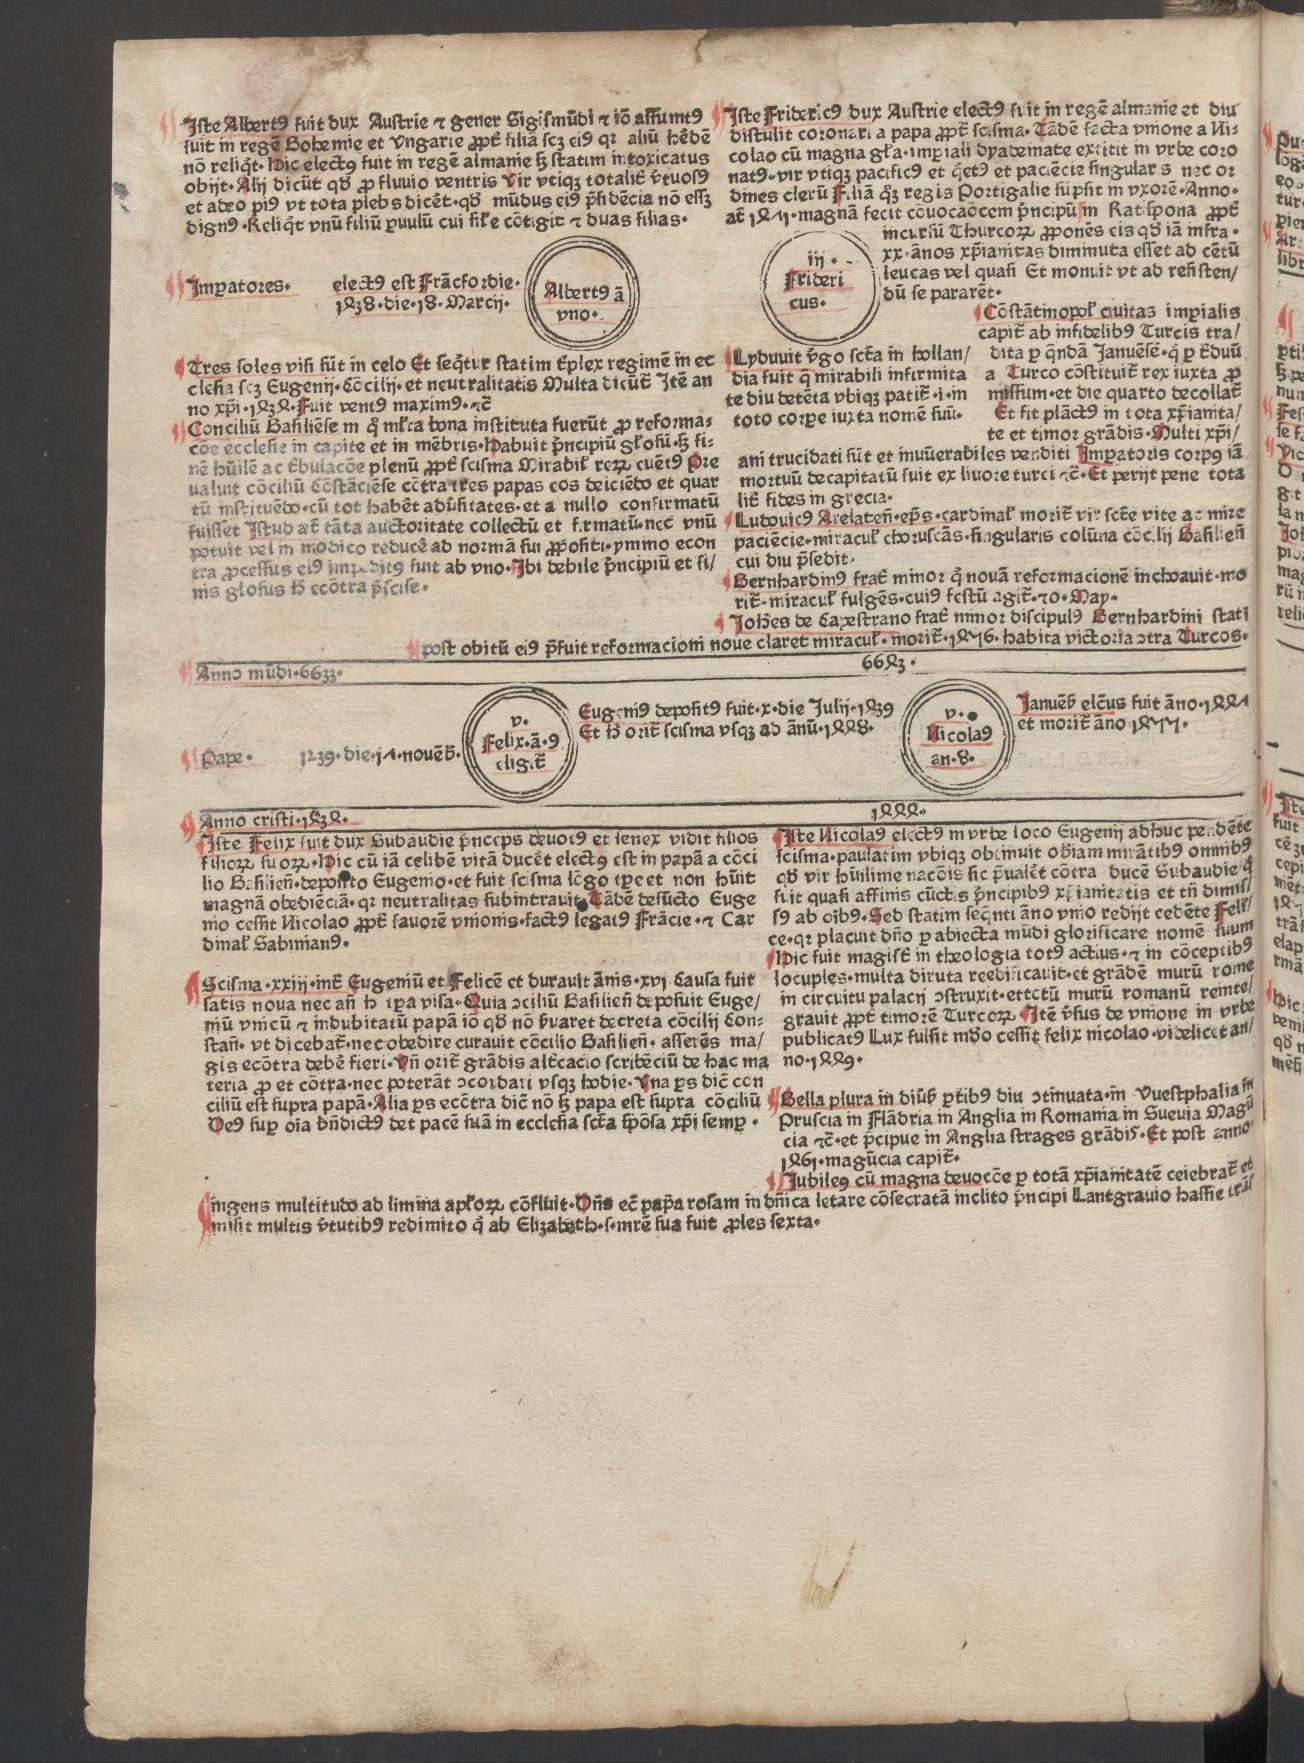 Iste Albertꝰ fuit dux Austrie ⁊ gener Sigismūdi ⁊ iō assumtꝰ
fuit in regē Bohemie et Vngarie ꝓpt̄ filiā scꝫ eiꝰ qꝛ aliū hēdē
nō reliq̇t· Hic electꝰ fuit in regē almanie hꝫ statim intoxicatus
obijt· Alij dicūt qd̄ ꝓ fluuio ventris Vir vtiqꝫ totalit̄ v̄tuosꝰ
et adeo piꝰ vt tota plebs dicēt· qd̄ mūdus eiꝰ p̄sidēcia nō essꝫ
dignꝰ· Reliq̇t vnū filiū ꝑuulū cui sil̄e cōtigit ⁊ duas filias·
Imꝑatores· electꝰ est Frācfordie·
1438· die· 18· Marcij·
Albertꝰ ā
vno·
Tres soles visi sūt in celo Et seq̄tur statim t̄plex regimē in ec
clesia scꝫ Eugenij· Cōcilij· et neutralitatis Multa dicūt̄ Itē an
no xp̄i· 1434· Fuit ventꝰ maximꝰ· ⁊c̄
Conciliū Basiliēse in q̇ ml̄ta bona instituta fuerūt ꝓ reforma⸗
cōe ecclesie in capite et in mēbris· Habuit p̄ncipiū gl̄osū· hꝫ fi⸗
nē hūilē ac t̄bulacōe plenū ꝓpt̄ scisma Mirabil̄ reꝝ euētꝰ Pre
ualuit cōciliū Cōstāciēse cōtra tres papas eos deiciēdo et quar
tū instituēdo· cū tot habēt adūsitates· et a nullo confirmatū
fuisset Istud at̄ tāta auctoritate collectū et firmatū· nec vnū
potuit vel in modico reducē ad normā sui ꝓpositi· ymmo econ
tra ꝓcessus eiꝰ impeditꝰ fuit ab vno· Ibi debile p̄ncipiū et fi/
nis glosus h̄ ecōtra p̄scise·
Iste Fridericꝰ dux Austrie electꝰ fuit in regē almanie et diu
distulit coronari a papa ꝓpt̄ scisma· Tādē facta vnione a Ni⸗
colao cū magna gl̄a· imꝑiali dyademate extitit in vrbe coro
natꝰ· vir vtiqꝫ pacificꝰ et q̇etꝰ et paciēcie singularis nec or
dines clerū Filiā qꝫ regis Portigalie sūpsit in vxorē· Anno·
at̄ 1471· magnā fecit cōuocaōcem p̄ncipū In Ratispona ꝓpt̄
incursū Thurcoꝝ ꝓponēs eis qd̄ iā infra·
xx· ānos xp̄ianitas diminuta esset ad cētū
leucas vel quasi Et monuit vt ad resisten/
dū se pararēt·
iij·
Frideri
cus·
Cōstātinopol̄ ciuitas imꝑialis
capit̄ ab infidelibꝰ Turcis tra/
dita ꝑ q̄ndā Januēsē· q̇ ꝑ t̄duū
a Turco cōstituit̄ rex iuxta ꝓ
missum· et die quarto decollat̄
Et fit plāctꝰ in tota xp̄ianita/
te et timor grādis· Multi xp̄i/
Lyduuit v̄go sct̄a in hollan/
dia fuit q̄ mirabili infirmita
te diu detēta vbiqꝫ patit̄· i· in
toto corꝑe iuxta nomē suū·
ani trucidati sūt et inuūerabiles venditi Imꝑatoris corpꝰ iā
mortuū decapitatū fuit ex liuore turci ⁊c̄· Et perijt pene tota
lit̄ fides in grecia·
Ludouicꝰ Arelateñ· ep̄s· cardinal̄ morit̄ vir sct̄e vite ac mire
paciēcie· miracul̄ choruscās· singularis colūna cōcilij Basilieñ
cui diu p̄sedit·
Bernhardinꝰ frat̄ minor q̇ nouā reformacionē inchoauit· mo
rit̄· miracul̄ fulgēs· cuiꝰ festū agit̄· 20· May·
Joh̄es de Capestrano frat̄ minor discipulꝰ Bernhardini stati
post obitū eiꝰ p̄fuit reformacioni noue claret miracul̄· morit̄· 1476· habita victoria ↄtra Turcos·
Anno mūdi· 6633·
6643·
Pape· 1439· die· 17· nouēb̄·
v·
Felix· ā· 9
eligit̄
Eugeniꝰ depositꝰ fuit· x· die Julij· 1439
Et h̄ orit̄ scisma vsqꝫ ad ānū· 1448·
v·
Nicolaꝰ
an· 8·
Januēs̄ elc̄us fuit āno· 1447
et morit̄ āno 1455·
Anno cristi· 1434·
1444·
Iste Felix fuit dux Subaudie p̄nceps deuotꝰ et senex vidit filios
filioꝝ suoꝝ· Hic cū iā celibē vitā ducēt electꝰ est in papā a cōci
lio Basilieñ· deposito Eugenio· et fuit scisma lōgo tp̄e et non hūit
magnā obediēciā· qꝛ neutralitas subintrauit· Tādē defūcto Euge
nio cessit Nicolao ꝓpt̄ fauorē vnionis· factꝰ legatꝰ Frācie· ⁊ Car
dinal̄ Sabinianꝰ·
Scisma· xxiij· int̄ Eugeniū et Felicē et durauit ānis· xvj Causa fuit
satis noua nec añ h̄ tp̄a visa· Quia ↄciliū Basilieñ deposuit Euge/
niū vnicū ⁊ indubitatū papā iō qd̄ nō s̄uaret decreta cōcilij Con⸗
stañ· vt dicebat̄· nec obedire curauit cōcilio Basilieñ· asserēs ma/
gis ecōtra debē fieri· Vñ orit̄ grādis alt̄cacio scribēciū de hac ma
teria ꝓ et cōtra· nec poterāt ↄcordari vsqꝫ hodie· Vna ꝑs dic̄ con
ciliū est supra papā· Alia ꝑs ecōtra dic̄ nō hꝫ papa est supra cōciliū
Deꝰ suꝑ oīa bn̄dictꝰ det pacē suā in ecclesia scta spōsa xp̄i semꝑ·
Iste Nicolaꝰ electꝰ in vrbe loco Eugenij adhuc pendēte
scisma· paulatim vbiqꝫ obtinuit obiam mirātibꝰ omnibꝰ
qd̄ vir hūilime nacōis sic p̄ualēt cōtra ducē Subaudie q̇
fuit quasi affinis cūctis p̄ncipibꝰ xp̄ianitatis et tn̄ dimis/
sꝰ ab oībꝰ· Sed statim seq̄nti āno vnio redijt cedēte Feli/
ce· qꝛ placuit dn̄o ꝑ abiecta mūdi glorificare nomē suum
Hic fuit magist̄ in theologia totꝰ actius· ⁊ in cōceptibꝰ
locuples· multa diruta reedificauit· et grādē murū rome
in circuitu palacij ↄstruxit· et totū murū romanū reinte/
grauit ꝓpt̄ timorē Turcoꝝ Itē v̄sus de vnione in vrbe
publicatꝰ Lux fulsit mūdo cessit felix nicolao· videlicet an/
no· 1449·
Bella plura in diūs̄ ꝑtibꝰ diu ↄtinuata· in Vuestphalia in
Pruscia in Flādria in Anglia in Romania in Sueuia Magū
cia ⁊c̄· et p̄cipue in Anglia strages grādis· Et post anno·
1461· magūcia capit̄·
Jubileꝰ cū magna deuocōe ꝑ totā xp̄ianitatē celebrat̄ et
ingens multitudo ad limina apl̄oꝝ cōfluit· Dn̄s ec̄ papa rosam in dn̄ica letare cōsecratā inclito p̄ncipi Lantgrauio hassie trās
misit multis v̄tutibꝰ redimito q̇ ab Elizabeth· s· mr̄e sua fuit ꝓles sexta·